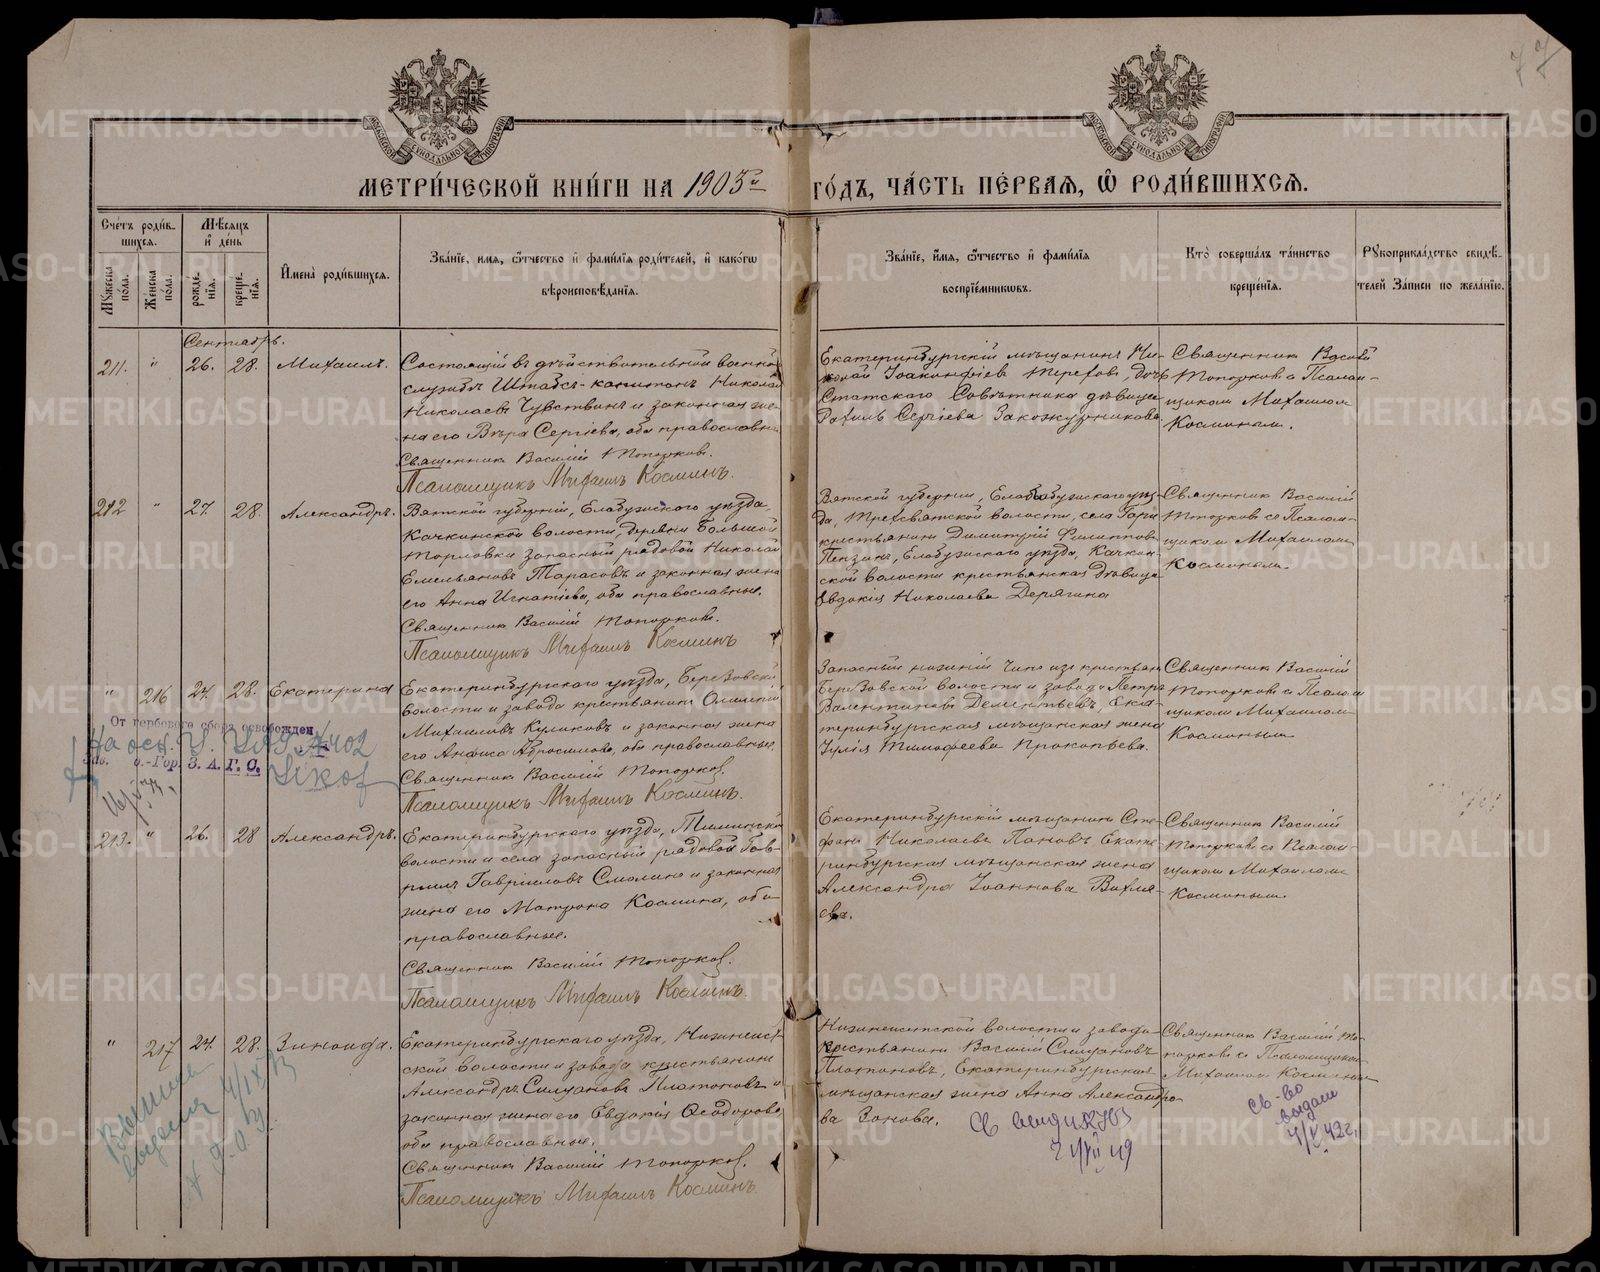 77
МЕТРИ́ЧЕСКОЙ КНИ́ГИ НА 1905й ГО́ДЪ, ЧА́СТЬ ПЕ́РВАѦ, Ѿ РОДИ́ВШИХСѦ.
Сче́тъ роди́в-шихсѧ.
Мѣ́сѧцъ и҆ де́нь
И҆мена̀ роди́вшихсѧ.
Зва́нїе, имѧ, ѻ҆́тчество и҆ фами́лїѧ роди́телей, и҆ како́гѡ вѣроисповѣ́данїѧ.
Зва́нїе, и҆́мѧ, ѻ҆́тчество и҆ фами́лїѧ воспрїе́мникѡвъ.
Кто̀ соверша́лъ та́инство креще́нїѧ.
Рꙋкоприкла́дство свидѣ́-телей За́писи по жела́нїю.
Мꙋ́жеска по́ла.
Же́нска по́ла.
рожде́нїѧ.
креще́нїѧ.
Сентябрь.
211. " 26. 28. Михаилъ.
Состоящій въ дѣйствительной военной
службѣ Штабсъ-капитанъ Николай
Николаевъ Чувствинъ и законная же-
на его Вѣра Сергіева, оба православные
Священникъ Василій Топорковъ.
Псаломщикъ Михаилъ Косминъ.
Екатеринбургскій мѣщанинъ Ни-
колай Іоакинфіевъ Тереховъ, дочь
Статскаго Совѣтника дѣвица
Рафиль Сергіева Закожурникова
Священникъ Василій
Топорковъ с Псалом-
щикомъ Михаиломъ
Косминымъ.
212 " 27. 28. Александръ.
Вятской губерніи, Елабужскаго уѣзда,
Качкинской волости, деревни Большой
Торловки запасный рядовой Николай
Емельяновъ Тарасовъ и законная жена
его Анна Игнатіева, оба православные.
Священникъ Василій Топорковъ.
Псаломщикъ Михаилъ Косминъ
Вятской губерніи, Елабужскаго уѣз-
да, Трехсвятской волости, села
крестьянинъ Димитрій Филиппов
Пензинъ, Елабужскаго уѣзда, Качкин-
ской волости крестьянская дѣвица
Евдокія Николаева Дерягина
Священникъ Василій
Топорковъ съ Псалом-
щикомъ Михаиломъ
Косминымъ.
" 216 24. 28. Екатерина
Екатеринбургскаго уѣзда, Березовской
волости и завода крестьянинъ
Михаиловъ Куликовъ и законная жена
его Анфиса Абросимова, оба православные.
Священникъ Василій Топорковъ.
Псаломщикъ Михаилъ Косминъ.
Запасный нижній чинъ изъ крестьян
Березовской волости и завода Петръ
Валентиновъ Дементьевъ, Ека-
теринбургская мѣщанская жена
Іулія Тимофеева Прокопьева.
Священникъ Василій
Топорковъ с Псалом
щикомъ Михаиломъ
Косминымъ
От гербового сбора освобожден
З. А. Г. С.
213. " 26. 28 Александръ.
Екатеринбургскаго уѣзда,
волости и села запасный рядовой Гав-
риилъ Гавріиловъ Смолинъ и законная
жена его Матрона Космина, оба
православные.
Священникъ Василій Топорковъ.
Псаломщикъ Михаилъ Косминъ.
Екатеринбургскій мѣщанинъ Сте-
фанъ Николаевъ Пановъ Екате-
ринбургская мѣщанская жена
Александра Іоаннова
Священникъ Василій
Топорковъ съ Псалом-
щикомъ Михаиломъ
Косминымъ.
" 217 24. 28. Зинаида.
Екатеринбургскаго уѣзда, Нижнеисет-
ской волости и завода крестьянинъ
Александръ Силуановъ Платоновъ и
законная жена его Евдокія Ѳеодорова,
оба православные.
Священникъ Василій Топорковъ.
Псаломщикъ Михаилъ Косминъ
Нижнеисетской волости и завода
крестьянинъ Василій Силуановъ
Платоновъ, Екатеринбургская
мѣщанская жена Анна Александро-
ва Зонова.
Священникъ Василій То-
порковъ с Псаломщикомъ
Михаиломъ Косминымъ
Св-во
выдано
4/V 42г.
METRIKI.GASO-URAL.RU